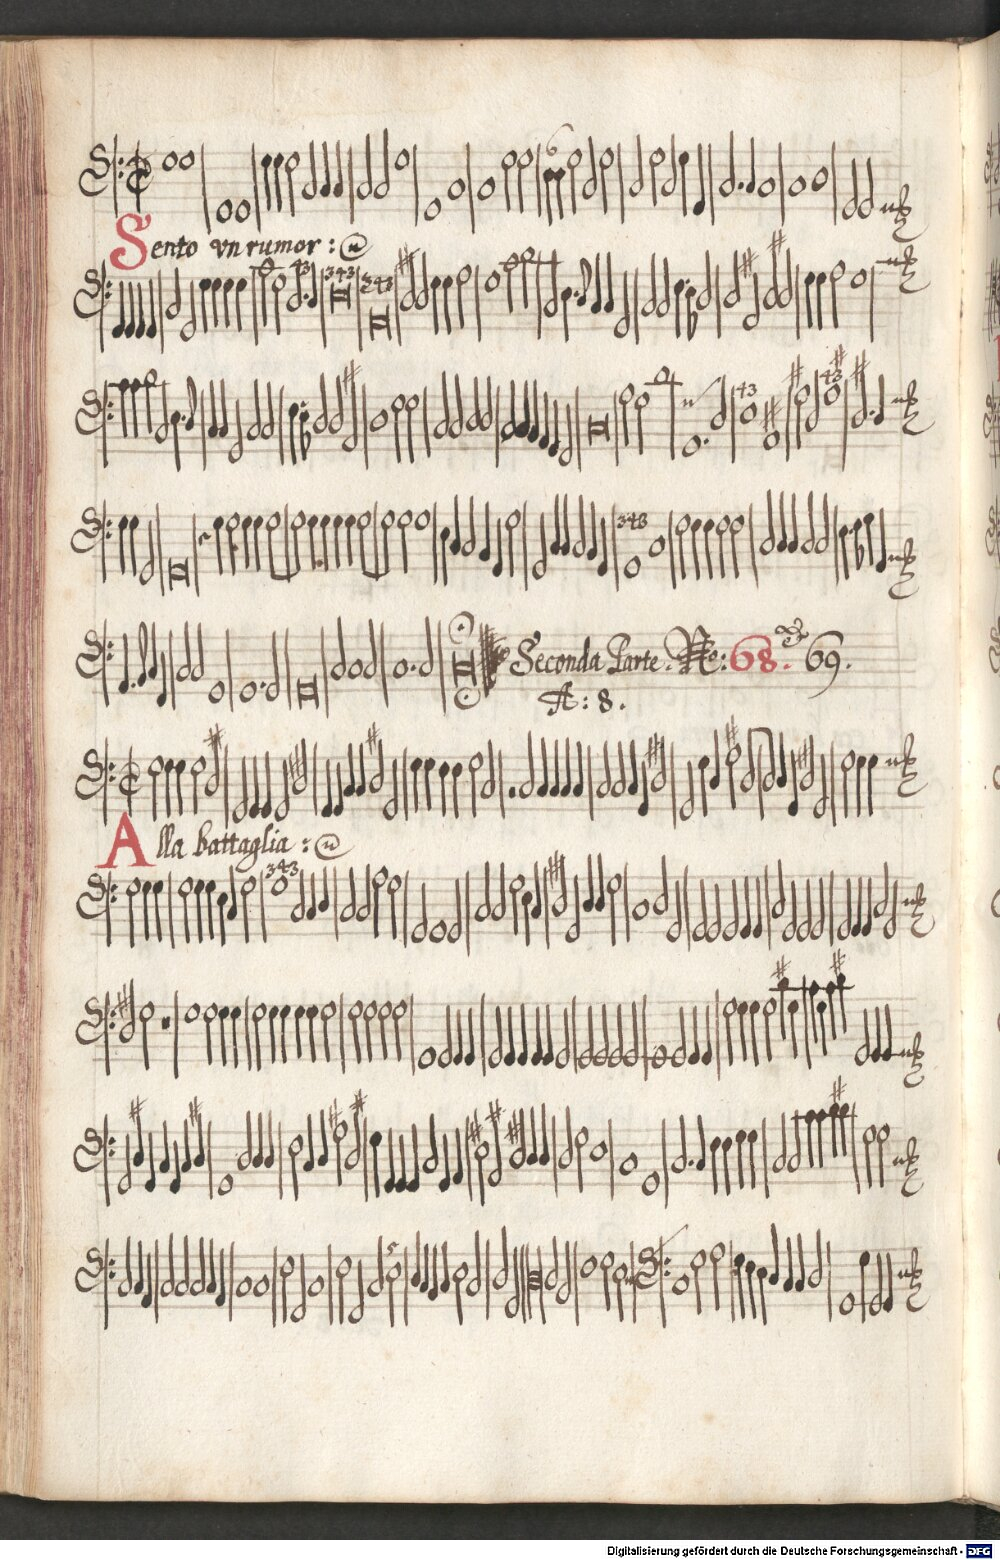 Sento vn rumor :
43 343
343
43 43
343
Seconda Parte. No: 68. 69.
A: 8.
Alla battaglia :
343
Digitalisierung gefördert durch die Deutsche Forschungsgemeinschaft - DFG